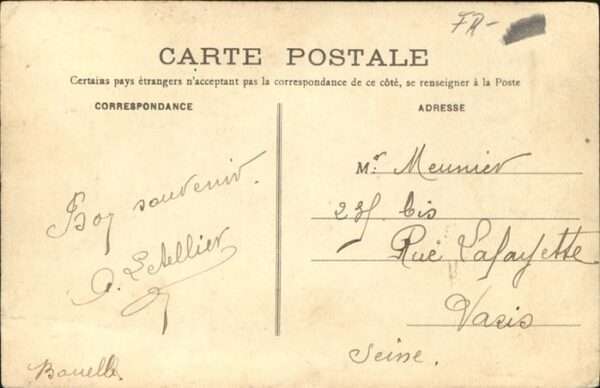 FR-
CARTE POSTALE
Certains pays étrangers n'acceptant pas la correspondance de ce côté, se renseigner à la Poste
CORRESPONDANCE
ADRESSE
Bon souvenir.
Letellier
Mr. Meunier
bis
Rue Lafayette
Paris
Seine.